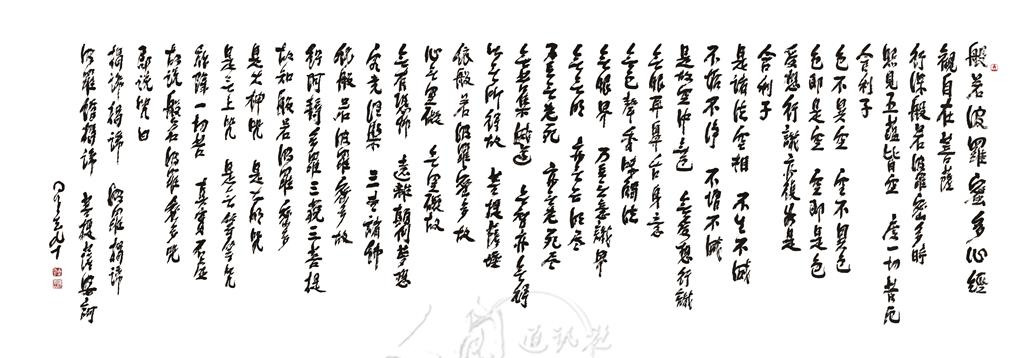 般若波羅蜜多心經
觀自在菩薩
行深般若波羅密多時
照見五蘊皆空 度一切苦厄
舍利子
色不異空 空不異色
色即是空 空即是色
受想行識 亦復如是
舍利子
是諸法空相 不生不滅
不垢不淨 不增不減
是故空中無色 無受想行識
無眼耳鼻舌身意
無色聲香味觸法
無眼界 乃至無意識界
無無明 亦無無明盡
乃至無老死 亦無老死盡
無苦集滅道 無智亦無得
以無所得故 菩提薩埵
依般若波羅密多故
心無罣礙 無罣礙故
無有恐怖 遠離顛倒夢想
究竟涅槃 三世諸佛
依般若波羅密多故
得阿耨多羅三藐三菩提
故知般若波羅密多
是大神咒 是大明咒
是無上咒 是無等等咒
能除一切苦 真實不虛
故說般若波羅密多咒
即說咒曰
揭諦揭諦 波羅揭諦
波羅僧揭諦 菩提薩婆訶